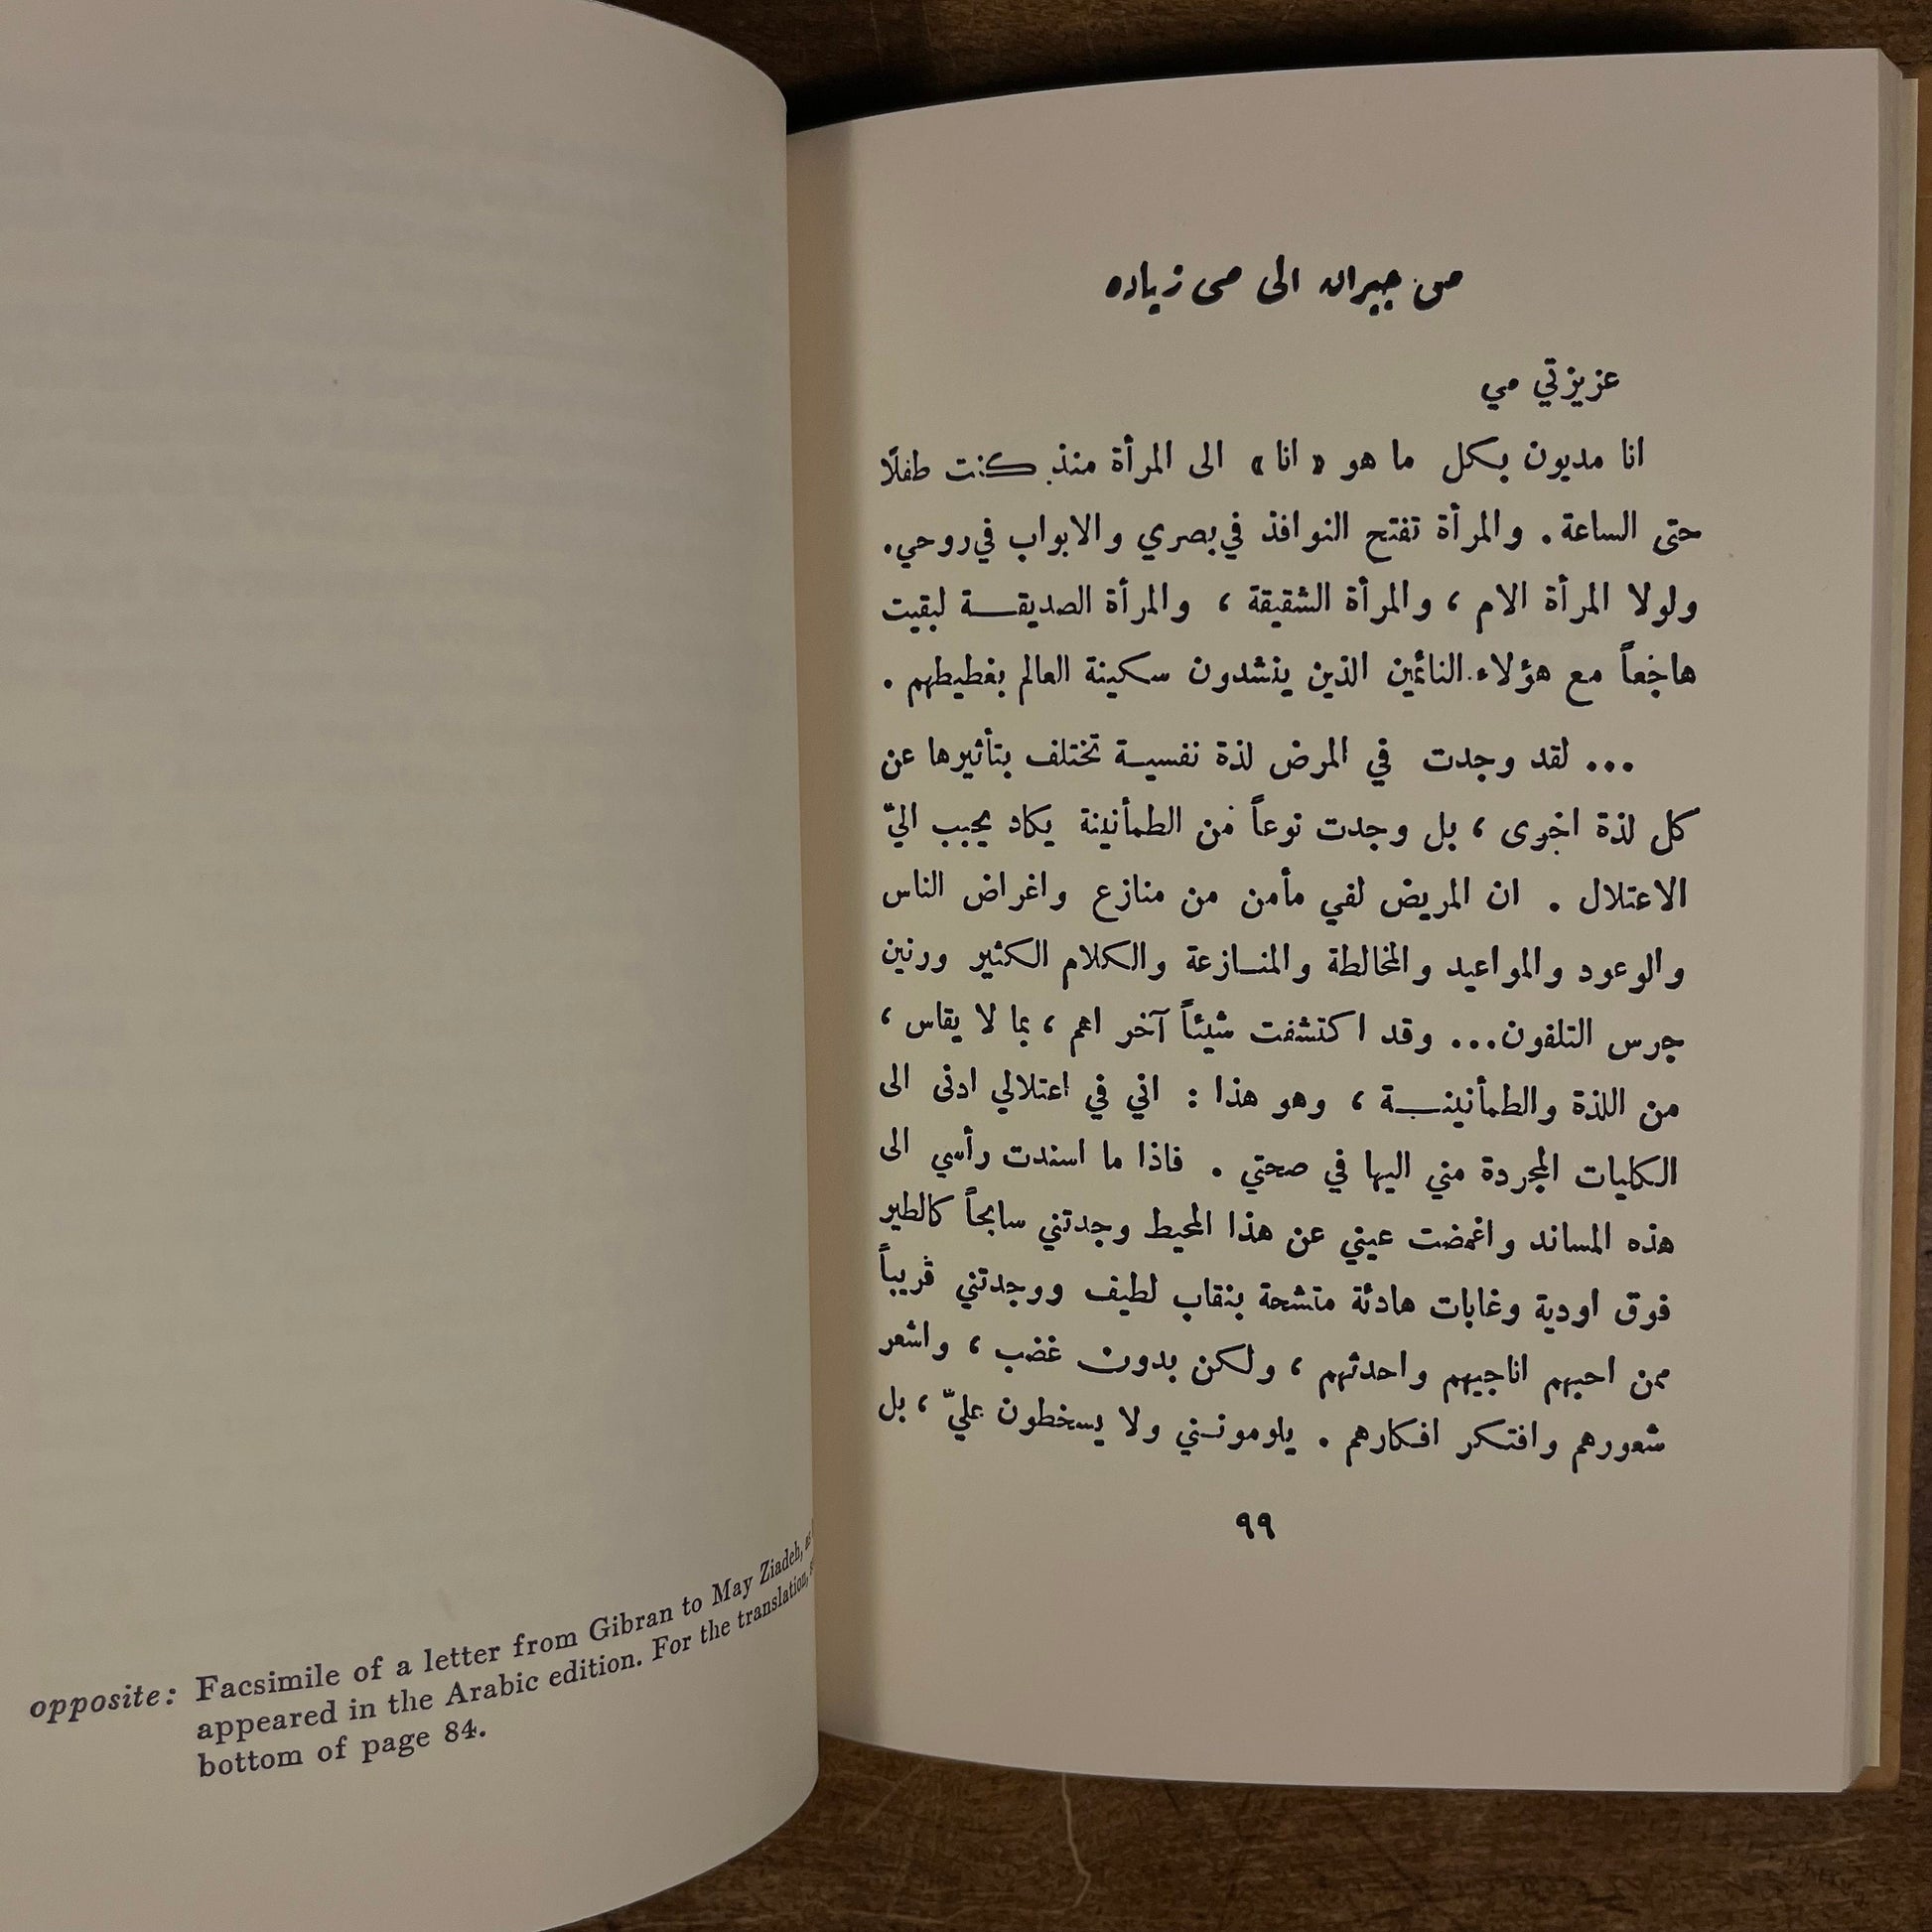 opposite: Facsimile of a letter from Gibran to May Ziadeh, as
appeared in the Arabic edition. For the translation,
bottom of page 84.
من جبران الى مي زياده
عزيزتي مي
انا مديون بكل ما هو « انا » الى المرأة منذ كنت طفلًا
حتى الساعة . والمرأة تفتح النوافذ في بصري والابواب في روحي .
ولولا المرأة الام ، والمرأة الشقيقة ، والمرأة الصديقة لبقيت
هاجعاً مع هؤلاء النائمين الذين ينشدون سكينة العالم بغطيطهم .
... لقد وجدت في المرض لذة نفسية تختلف بتأثيرها عن
كل لذة اخرى ، بل وجدت نوعاً من الطمأنينة يكاد يحبب اليّ
الاعتلال . ان المريض لفي مأمن من منازع واغراض الناس
والوعود والمواعيد والمخالطة والمنازعة والكلام الكثير ورنين
جرس التلفون ... وقد اكتشفت شيئاً آخر اهم ، بما لا يقاس ،
من اللذة والطمأنينة ، وهو هذا : اني في اعتلالي ادنى الى
الكليات المجردة مني اليها في صحتي . فاذا ما اسندت رأسي الى
هذه المساند واغمضت عيني عن هذا المحيط وجدتني سابحاً كالطير
فوق اودية وغابات هادئة متشحة بنقاب لطيف ووجدتني قريباً
ممن احبهم اناجيهم واحدثهم ، ولكن بدون غضب ، واشعر
شعورهم وافتكر افكارهم . يلومونني ولا يسخطون عليّ ، بل
٩٩